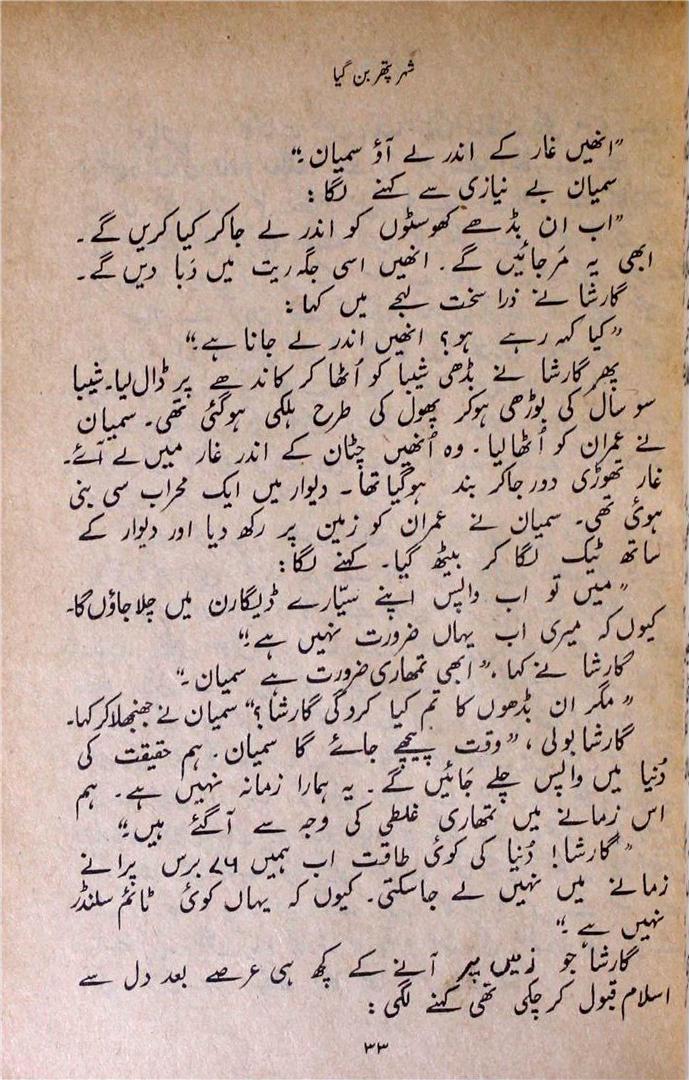 شہر پتھر بن گیا
”انھیں غار کے اندر لے آؤ سمیان۔“
سمیان بے نیازی سے کہنے لگا:
”اب ان بڈھے کھوسٹوں کو اندر لے جا کر کیا کریں گے۔
ابھی یہ مَر جائیں گے۔ انھیں اسی جگہ ریت میں دَبا دیں گے۔
گارشا نے ذرا سخت لہجے میں کہا:
”کیا کہہ رہے ہو؟ انھیں اندر لے جانا ہے۔“
پھر گارشا نے بڈھی شیبا کو اُٹھا کر کاندھے پر ڈال لیا۔ شیبا
سو سال کی بوڑھی ہو کر پھول کی طرح ہلکی ہو گئی تھی۔ سمیان
نے عمران کو اُٹھا لیا۔ وہ اُنھیں چٹان کے اندر غار میں لے آئے۔
غار تھوڑی دور جا کر بند ہو گیا تھا۔ دیوار میں ایک محراب سی بنی
ہوئی تھی۔ سمیان نے عمران کو زمین پر رکھ دیا اور دیوار کے
ساتھ ٹیک لگا کر بیٹھ گیا۔ کہنے لگا:
”میں تو اب واپس اپنے سیّارے ڈیگارن میں چلا جاؤں گا۔
کیوں کہ میری اب یہاں ضرورت نہیں ہے۔“
گارشا نے کہا، ”ابھی تمھاری ضرورت ہے سمیان۔“
”مگر ان بڈھوں کا تم کیا کرو گی گارشا؟“ سمیان نے جھنجھلا کر کہا۔
گارشا بولی، ”وقت پیچھے جائے گا سمیان۔ ہم حقیقت کی
دُنیا میں واپس چلے جائیں گے۔ یہ ہمارا زمانہ نہیں ہے۔ ہم
اس زمانے میں تمھاری غلطی کی وجہ سے آ گئے ہیں۔“
”گارشا! دُنیا کی کوئی طاقت اب ہمیں ۷۶ برس پرانے
زمانے میں نہیں لے جا سکتی۔ کیوں کہ یہاں کوئی ٹائم سلنڈر
نہیں ہے۔“
گارشا جو زمین پر آنے کے کچھ ہی عرصے بعد دل سے
اسلام قبول کر چکی تھی کہنے لگی:
۳۳